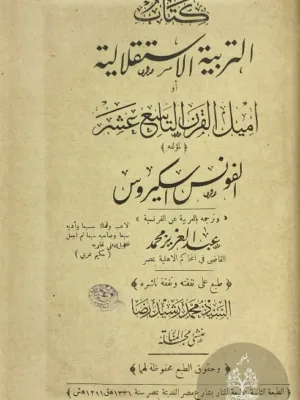 كتاب
التربية الاستقلالية
أو
اميل القرن التاسع عشر
﴿ لمؤلفه ﴾
الفونس اسكيروس
« وترجمه بالعربية عن الفرنسية »
عبد العزيز محمد
القاضي في المحاكم الاهلية بمصر
لاعب ولدك سبعا وأدبه
سبعا وصاحبه سبعا ثم اجعل
( حكيم عربي )
﴿ طبع على نفقته ونفقة ناشره ﴾
السيد محمد رشيد رضا
منشئ مجلة المنار
﴿ وحقوق الطبع محفوظة لهما ﴾
الطبعة الثانية بمطبعة المنار بشارع مصر القديمة بمصر سنة ١٣٣١